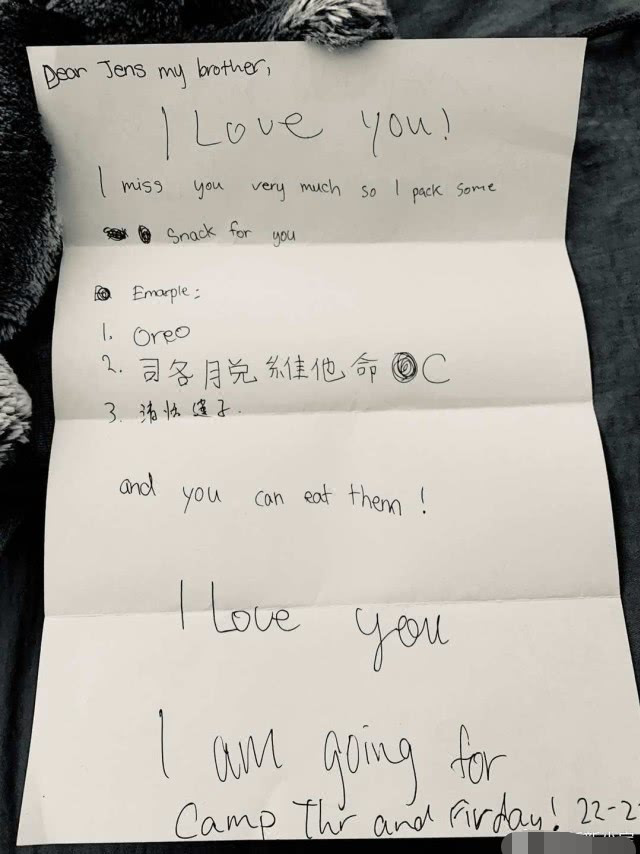 Dear Jens my brother,
I Love you!
I miss you very much so I pack some
Snack for you
Emarple:
1. Oreo
2. 司各月兑維他命 C
3. 清
and you can eat them!
I Love you
I am going for
Camp Thr and Firday! 22-2